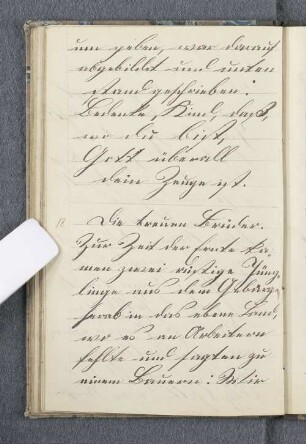 um geben, war darauf
abgebildet und unten
stand geschrieben:
Bedenke, Kind, daß,
wo du bist,
Gott überall
dein Zeuge ist.
18 Die treuen Brüder.
Zur Zeit der Ernte ka-
men zwei rüstige Jüng-
linge aus dem Gebirge
herab in das ebene Land,
wo es an Arbeitern
fehlte und sagten zu
einem Bauern: Wir